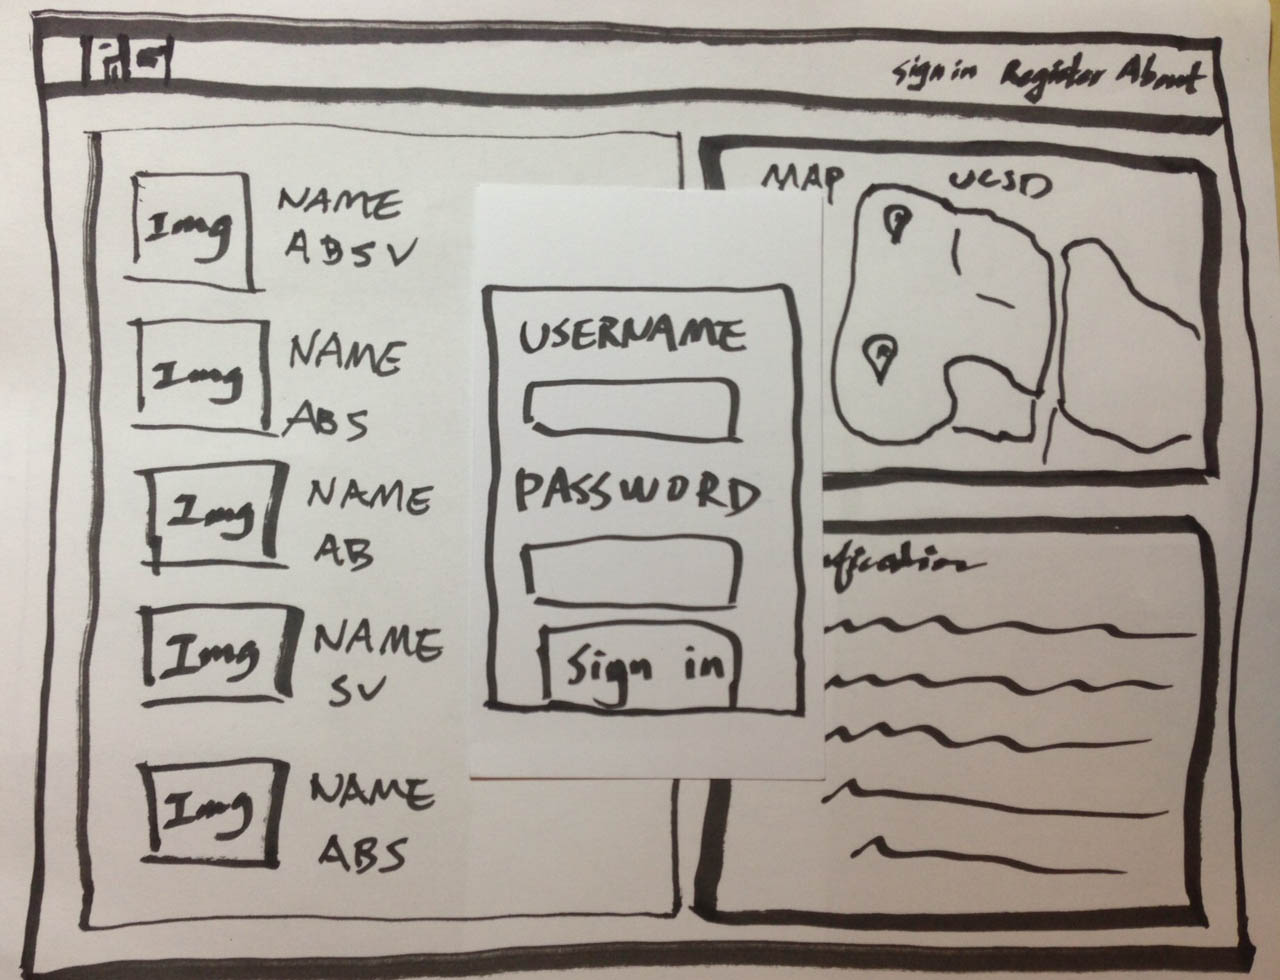 Sign in Register About
Img
NAME
ABSV
Img
NAME
ABS
Img
NAME
AB
Img
NAME
SV
Img
NAME
ABS
USERNAME
PASSWORD
Sign in
MAP UCSD